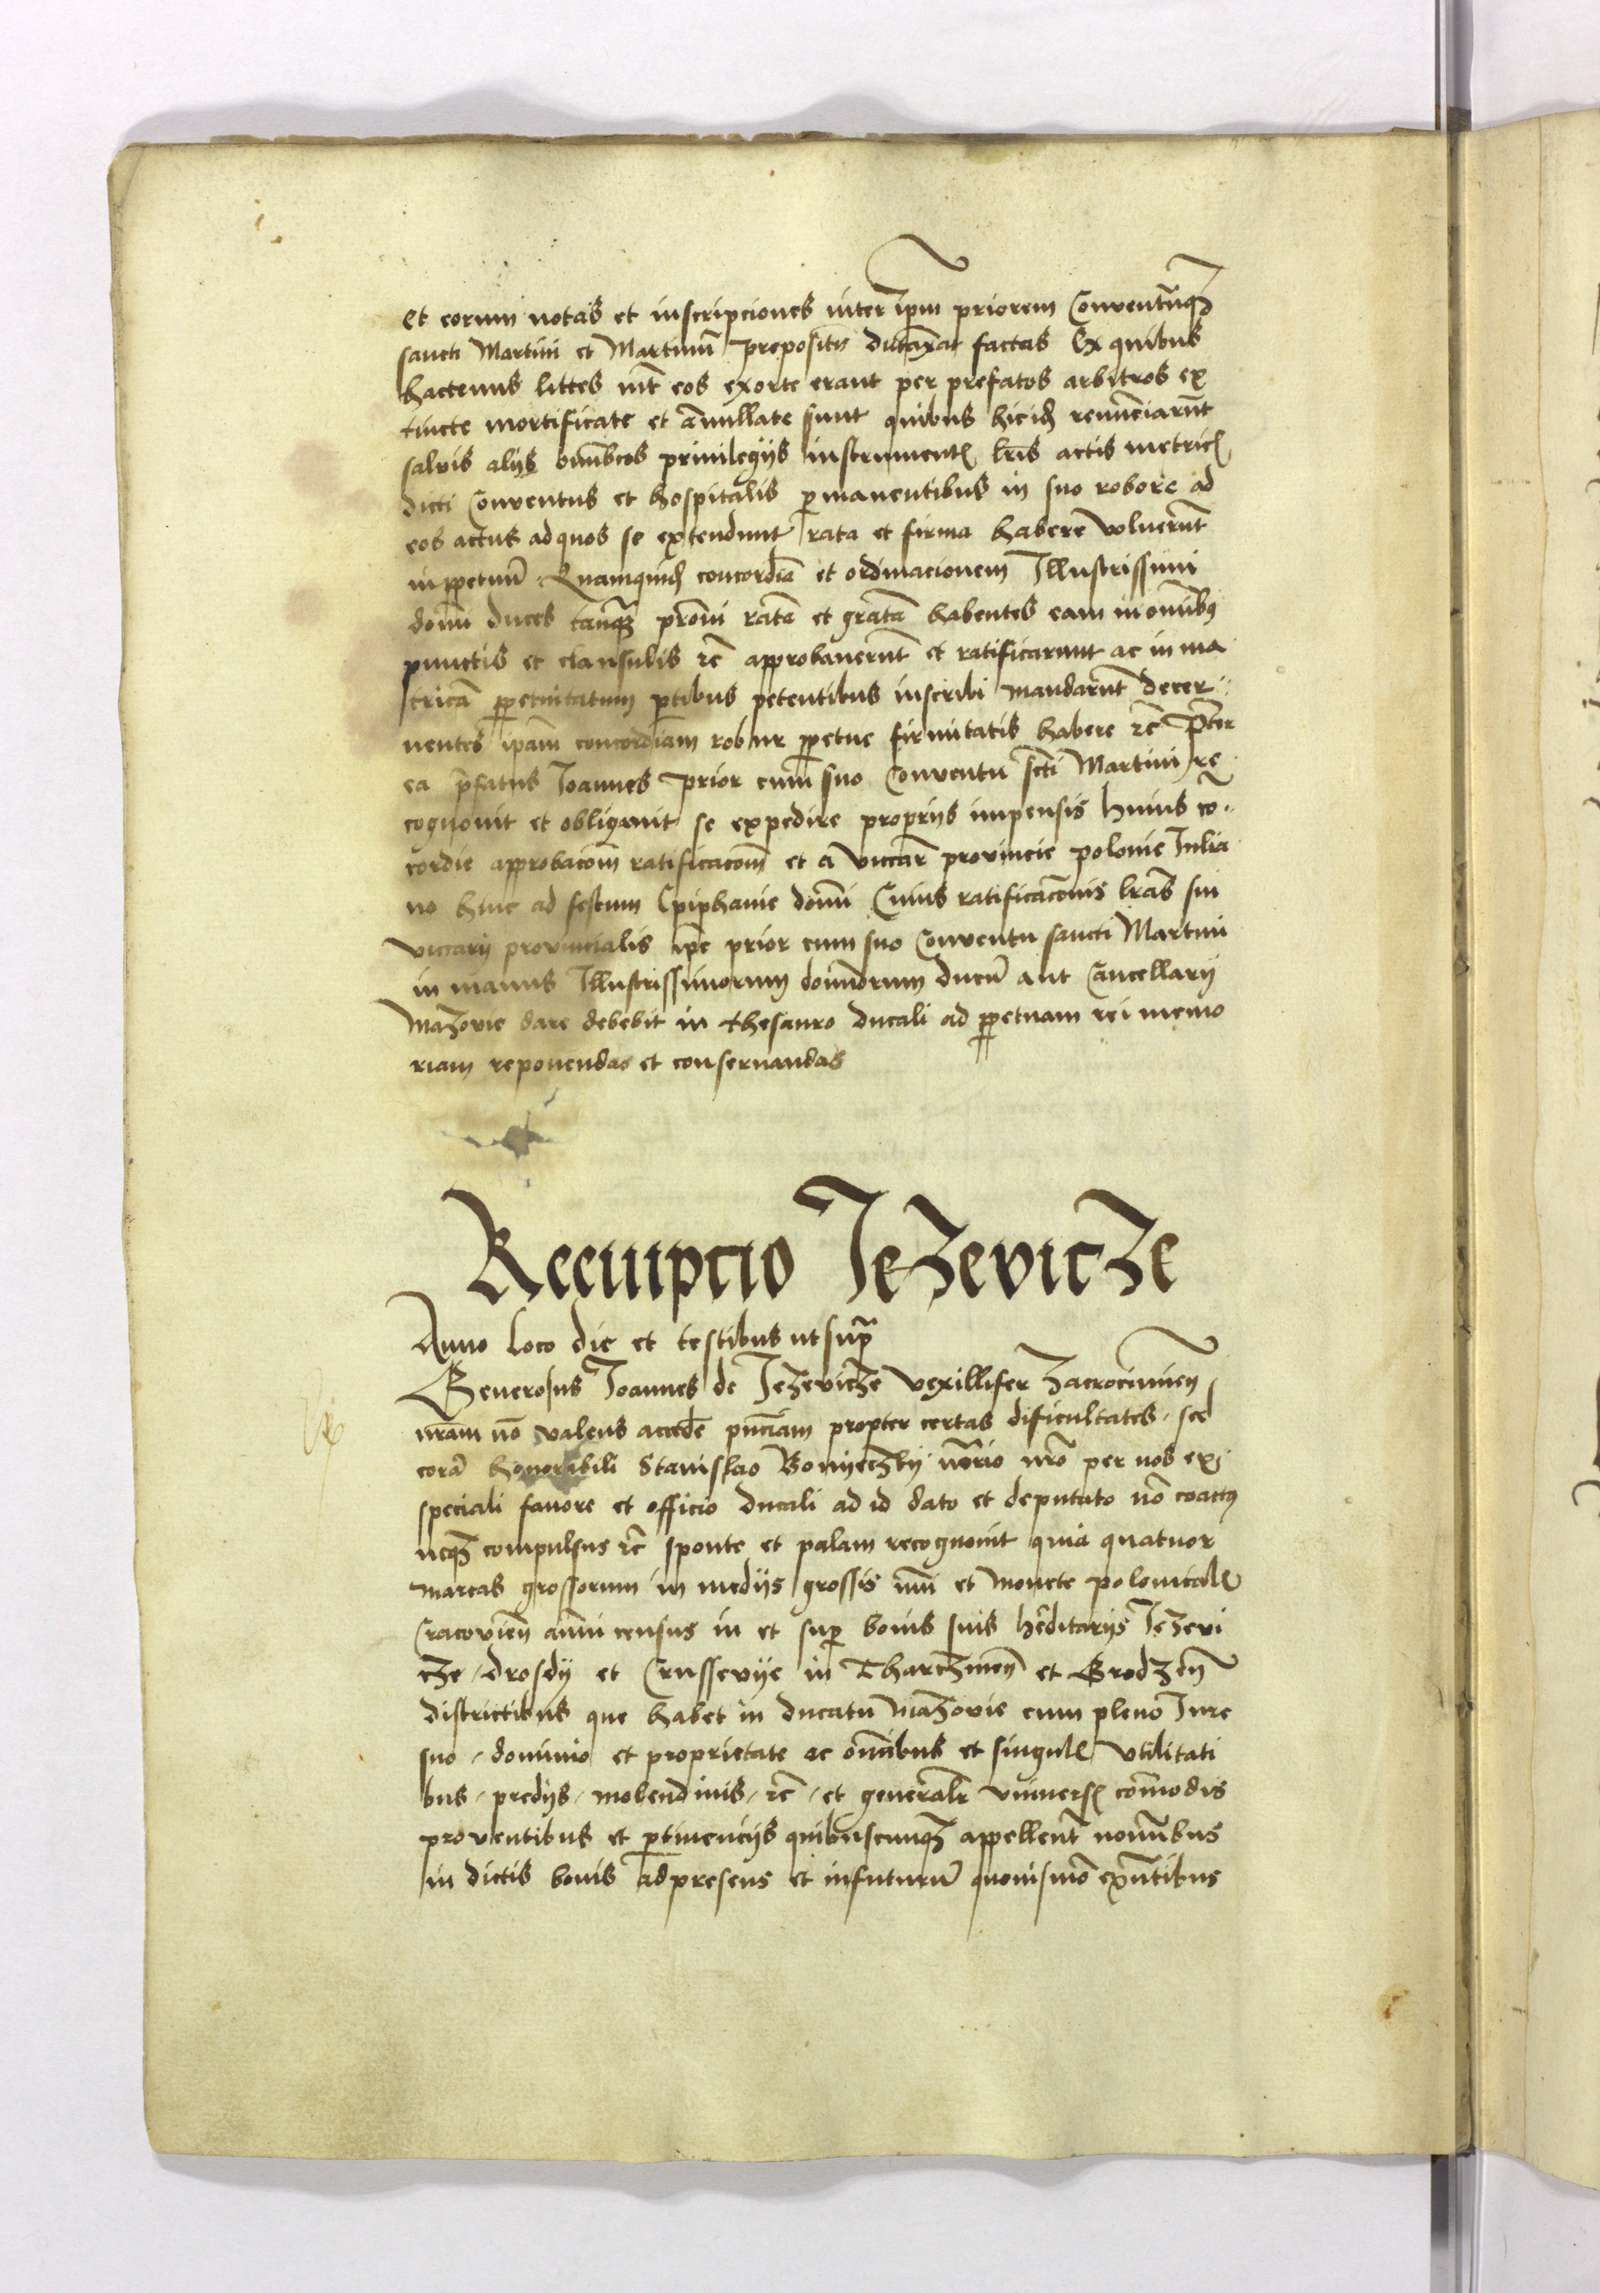 Et eorum notas et inscripciones inter ipm priorem Conventumq3
sancti Martini et Martinū prepositū dutaxat factas Ex quibus
hactenus littes int eos exorte erant per prefatos arbitros ex
tincte mortificate et ānullate sunt quibus hicid renūciarūt
salvis alijs om̄bcos privilegijs instrumentꝭ lr̄is actis metricꝭ
dicti Conventus et hospitalis ꝑmanentibus in suo robore ad
eos actus ad quos se extendunt rata et firma habere voluerūt
inꝑpetuū Quamquid concordiā et ordinacionem Illustrissimi
domī duces tanq3 pronī ratā et gratā habentes eam in omībꝯ
punctis et clausulis rc̄ approbaverūt et ratificarunt ac in ma
tricā ꝑpetuitatum ꝑtibus petentibus inscribi mandarūt decer
nentes ipam concordiam robur ꝑpetue firmitatis habere rc̄ Pter
ea p̄fatus Joannes prior cum suo Conventu scti Martini re
cognovit et obligavit se expedire proprijs impensis huius cō
cordie approbacōm ratificacōm et a viccar̄ provincie polonie Julia
no hinc ad festum Epiphanie domī Cuius ratificacōnis lrās sui
viccarij provincialis ipe prior cum suo Conventu sancti Martini
in manus Illustrissimorum dominorum ducū aut Cancellarij
Mazovie dare debebit in thesauro ducali ad ꝑpetuam rei memo
riam reponendas et conservandas
Reempcio Jezevicze
Anno loco die et testibus ut supra
Generosus Joannes de Jezevicze vexillifer Zacrocimien
nram nō valens accede pn̄ciam propter certas dificultates sed
corā honorabili Stanislao Bonyeczky nōrio nrō per nos ex
speciali favore et officio ducali ad id dato et deputato nō coactꝯ
neq3 compulsus rc̄ sponte et palam recognovit quia quatuor
marcas grossorum in medijs grossis nūi et monete polonicalꝭ
Cracovien̄ annui census in et sup bonis suis hēditarijs Jezevi
cze Drosdy et Crussevye in Tharczinen̄ et Grodzen̄
districtibus que habet in ducatu Mazovie cum pleno Jure
suo dominio et proprietate ac omībus et singulꝭ utilitati
bus predijs molendinis rc̄ et generalr̄ universꝭ cōmodis
proventibus et ꝑtinencijs quibuscumq3 appellent nomībus
in dictis bonis ad presens et in futurū quovismō exn̄tibus